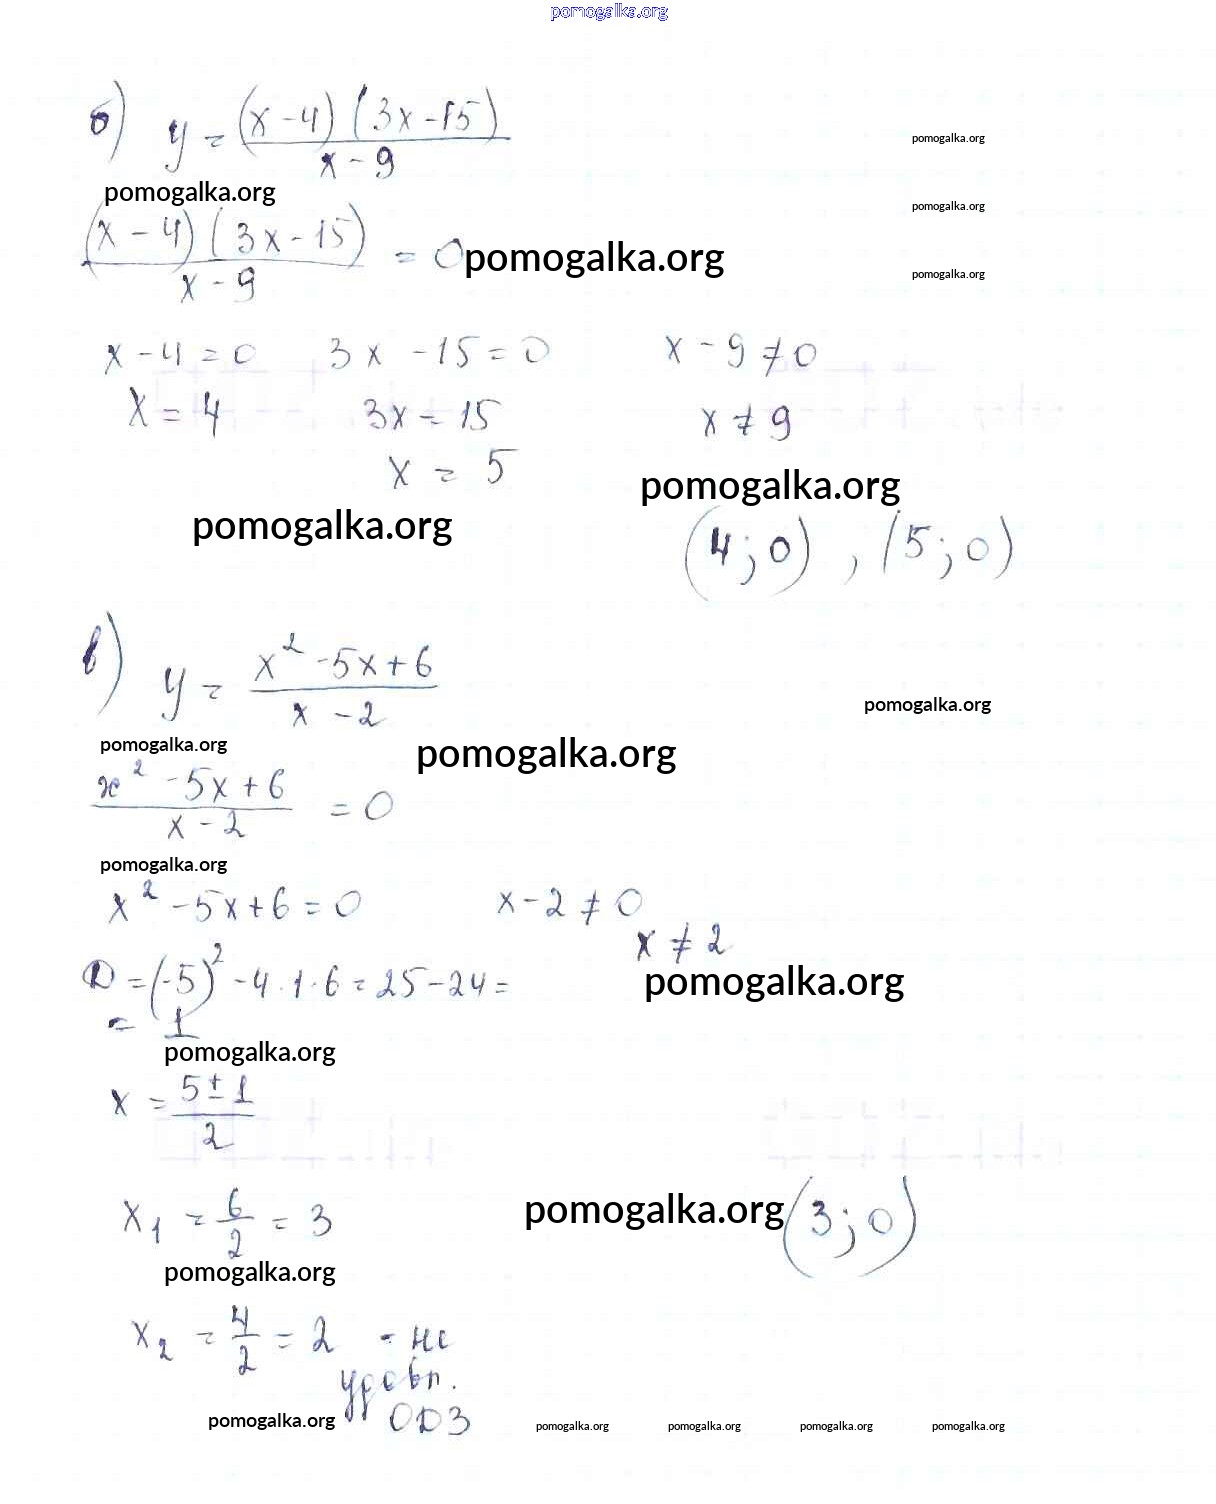 pomogalka.org
б) y = (x-4)(3x-15)/(x-9)
pomogalka.org
pomogalka.org
pomogalka.org
(x-4)(3x-15)/(x-9) = 0
pomogalka.org
pomogalka.org
x-4=0 3x-15=0 x-9≠0
x=4 3x=15 x≠9
x = 5
pomogalka.org
pomogalka.org
(4;0), (5;0)
в) y = (x²-5x+6)/(x-2)
pomogalka.org
pomogalka.org
pomogalka.org
(x²-5x+6)/(x-2) = 0
pomogalka.org
x²-5x+6=0 x-2≠0
x≠2
D=(-5)²-4·1·6=25-24=
= 1
pomogalka.org
pomogalka.org
x = (5±1)/2
x₁ = 6/2 = 3
pomogalka.org (3;0)
pomogalka.org
x₂ = 4/2 = 2 - не
удовл.
ОДЗ
pomogalka.org pomogalka.org pomogalka.org pomogalka.org pomogalka.org